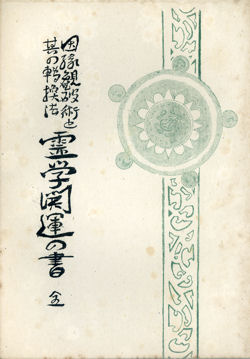 因縁観破術と
其の転換法
霊学開運の書
全